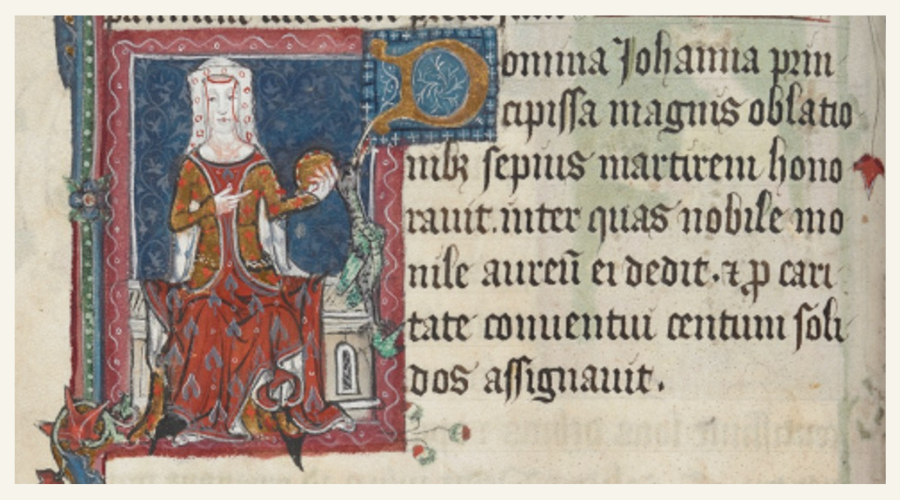 Domina Johanna prin
cipissa magnis oblatio
nibꝫ sepius martirem hono
rauit. inter quas nobile mo
nile aureū ei dedit. ⁊ ꝓ cari
tate conuentui centum soli
dos assignauit.